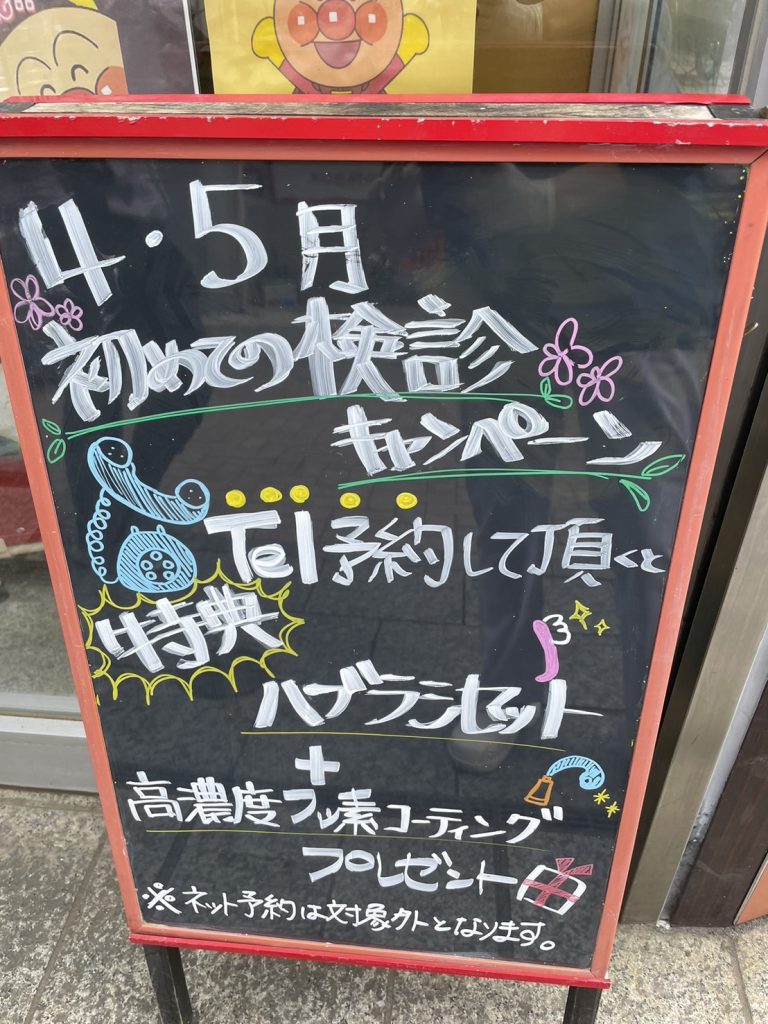 4・5月
初めての検診
キャンペーン
Tel予約して頂くと
特典
ハブラシセット
+
高濃度フッ素コーティング
プレゼント
※ネット予約は対象外となります。